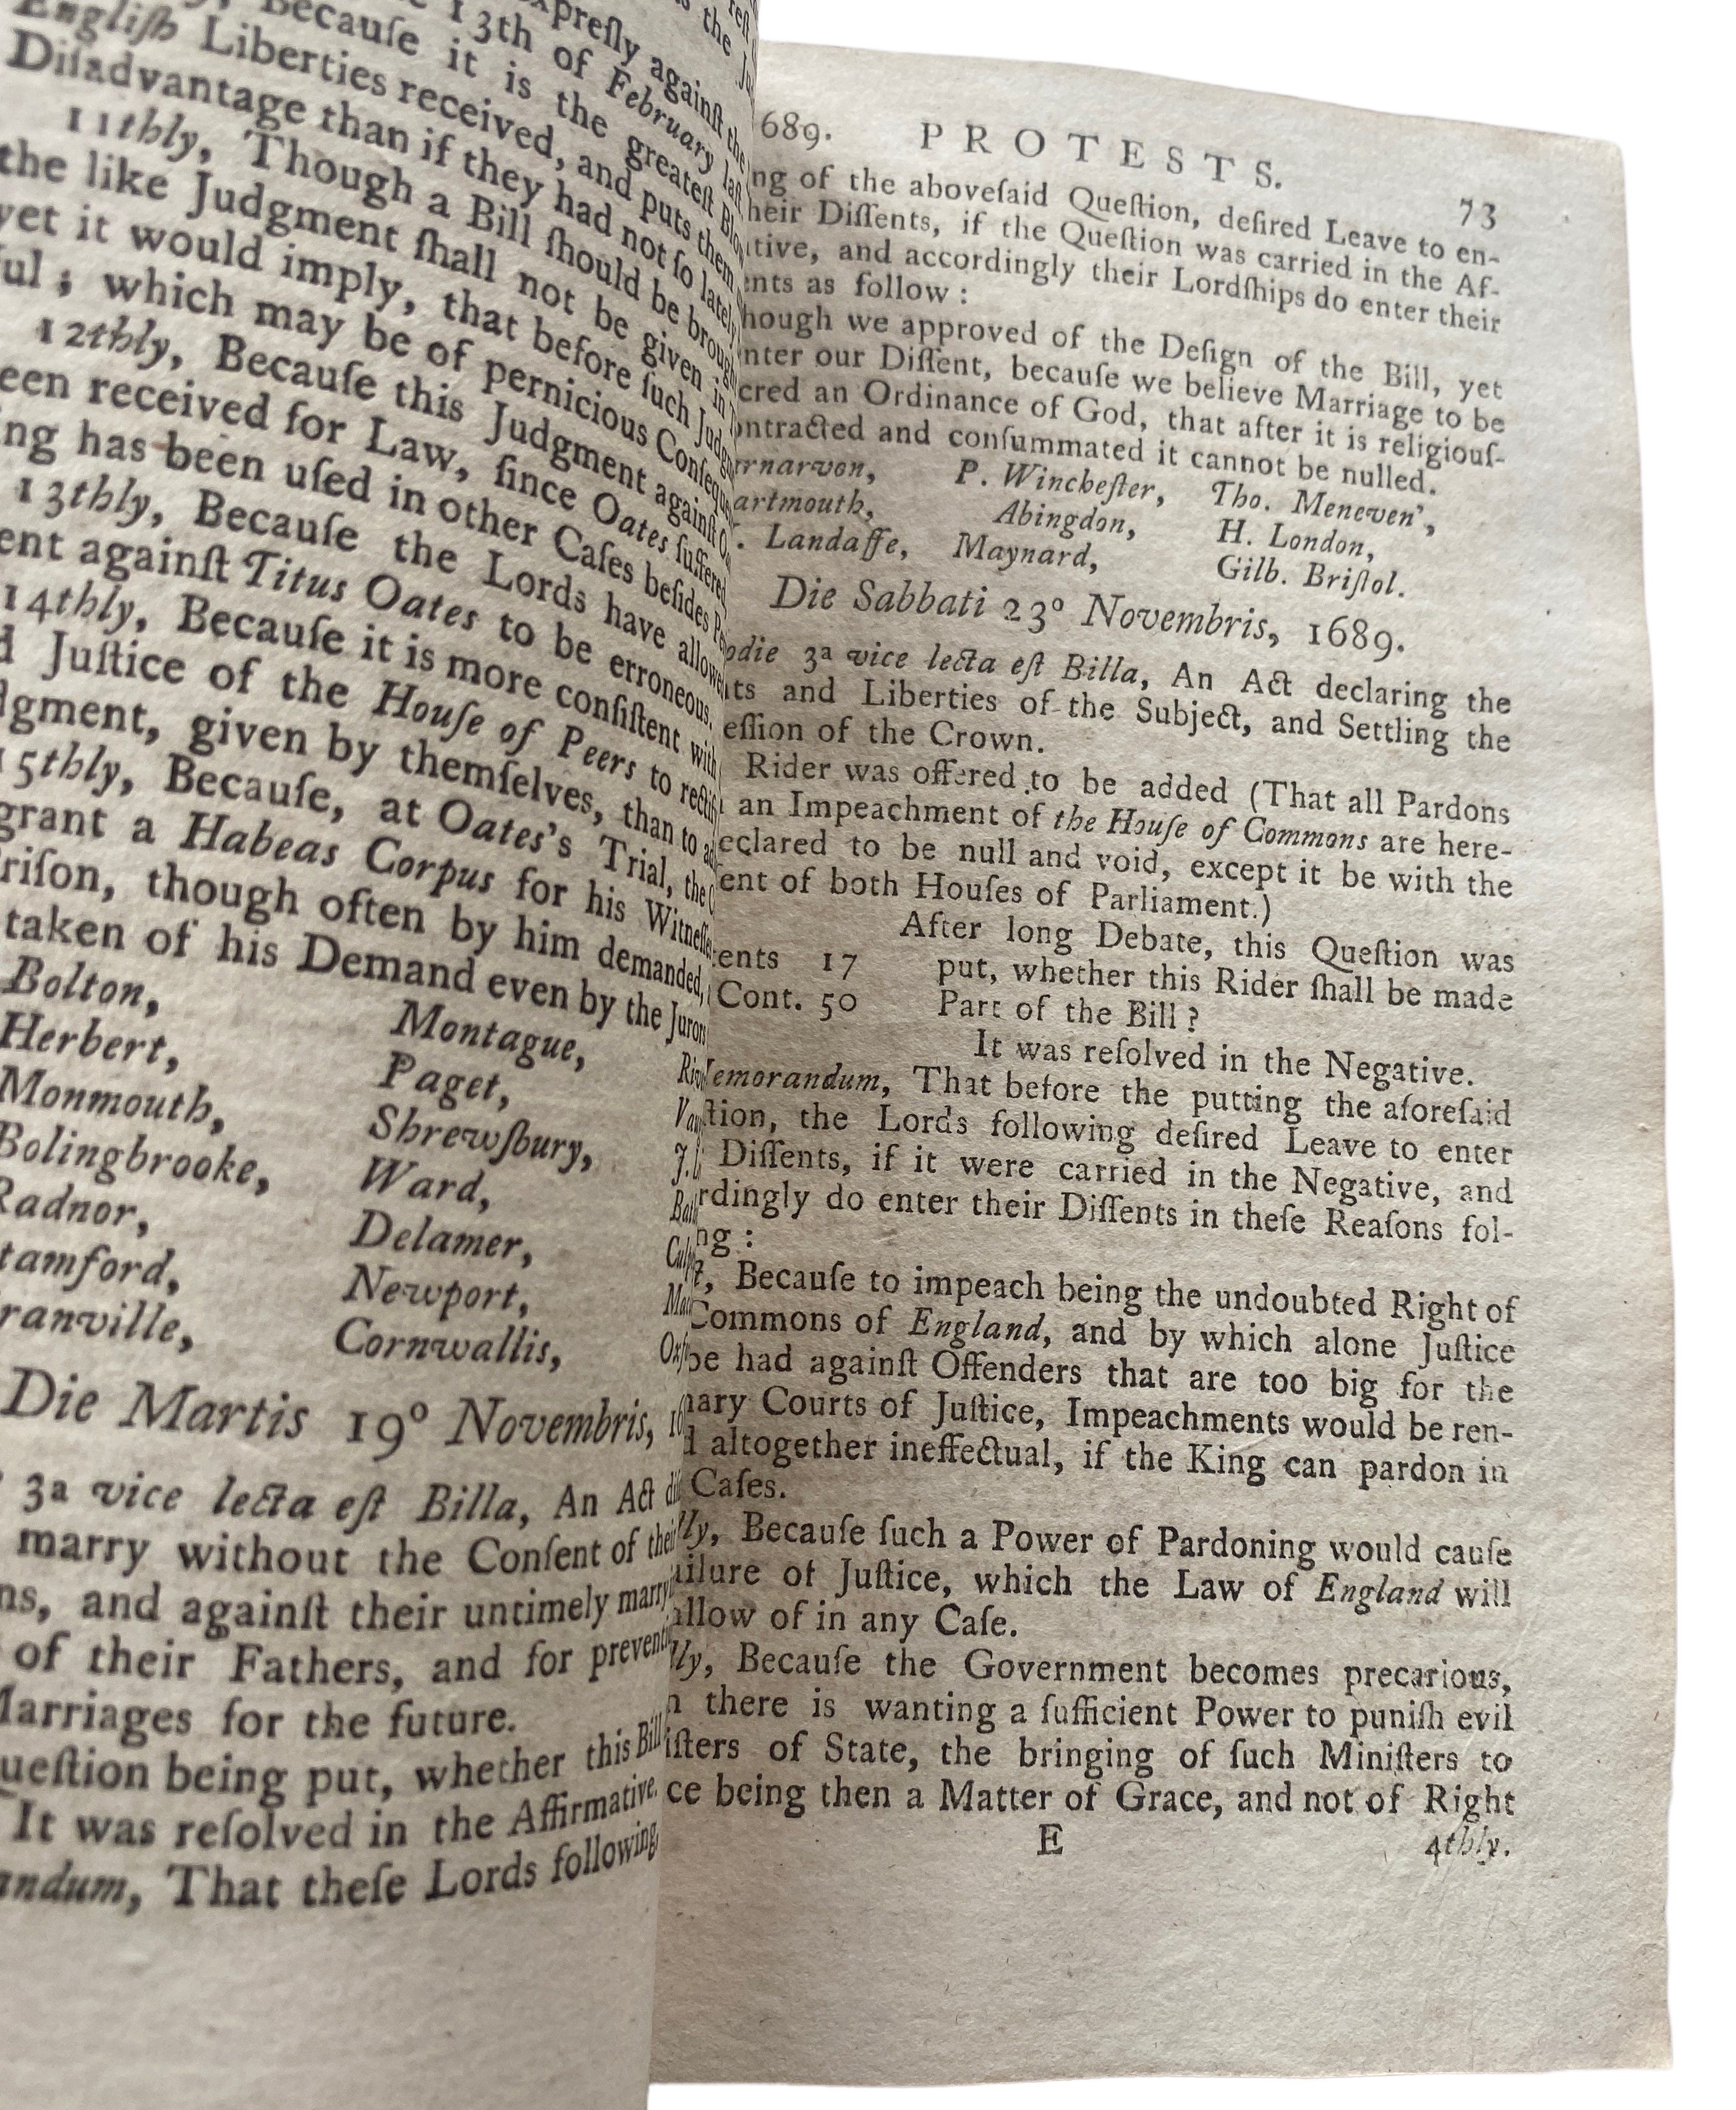 preſly againſt the
13th of February laſt
Becauſe it is the greateſt
Engliſh Liberties received, and puts them
Diſadvantage than if they had not ſo lately
11thly, Though a Bill ſhould be
the like Judgment ſhall not be given in
yet it would imply, that before ſuch
ful; which may be of pernicious
12thly, Becauſe this Judgment againſt
een received for Law, ſince Oates ſuffered
ing has been uſed in other Caſes beſides
13thly, Becauſe the Lords have
ent againſt Titus Oates to be erroneous,
14thly, Becauſe it is more conſiſtent with
d Juſtice of the Houſe of Peers to
dgment, given by themſelves, than to
15thly, Becauſe, at Oates's Trial, the
grant a Habeas Corpus for his
riſon, though often by him demanded,
taken of his Demand even by the Jurors
Bolton, Montague,
Herbert, Paget,
Monmouth, Shrewſbury,
Bolingbrooke, Ward,
Radnor, Delamer,
tamford, Newport,
ranville, Cornwallis,
Die Martis 19º Novembris,
3a vice lecta eſt Billa, An Act
marry without the Conſent of their
ns, and againſt their untimely
of their Fathers, and for
Marriages for the future.
ueſtion being put, whether this Bill
It was reſolved in the Affirmative.
andum, That theſe Lords following,
689. PROTESTS. 73
ng of the aboveſaid Queſtion, deſired Leave to en-
heir Diſſents, if the Queſtion was carried in the Af-
tive, and accordingly their Lordſhips do enter their
ents as follow:
hough we approved of the Deſign of the Bill, yet
nter our Diſſent, becauſe we believe Marriage to be
cred an Ordinance of God, that after it is religiouſ-
ontracted and conſummated it cannot be nulled.
rnarvon, P. Wincheſter, Tho. Meneven',
artmouth, Abingdon, H. London,
. Landaffe, Maynard, Gilb. Briſtol.
Die Sabbati 23º Novembris, 1689.
odie 3a vice lecta eſt Billa, An Act declaring the
ts and Liberties of the Subject, and Settling the
eſſion of the Crown.
Rider was offered to be added (That all Pardons
an Impeachment of the Houſe of Commons are here-
eclared to be null and void, except it be with the
ent of both Houſes of Parliament.)
After long Debate, this Queſtion was
ents 17 put, whether this Rider ſhall be made
Cont. 50 Part of the Bill?
It was reſolved in the Negative.
emorandum, That before the putting the aforeſaid
ſtion, the Lords following deſired Leave to enter
Diſſents, if it were carried in the Negative, and
rdingly do enter their Diſſents in theſe Reaſons fol-
ng:
, Becauſe to impeach being the undoubted Right of
Commons of England, and by which alone Juſtice
be had againſt Offenders that are too big for the
nary Courts of Juſtice, Impeachments would be ren-
d altogether ineffectual, if the King can pardon in
Caſes.
ly, Becauſe ſuch a Power of Pardoning would cauſe
ailure of Juſtice, which the Law of England will
allow of in any Caſe.
ly, Becauſe the Government becomes precarious,
n there is wanting a ſufficient Power to puniſh evil
iſters of State, the bringing of ſuch Miniſters to
ce being then a Matter of Grace, and not of Right
E 4thly.